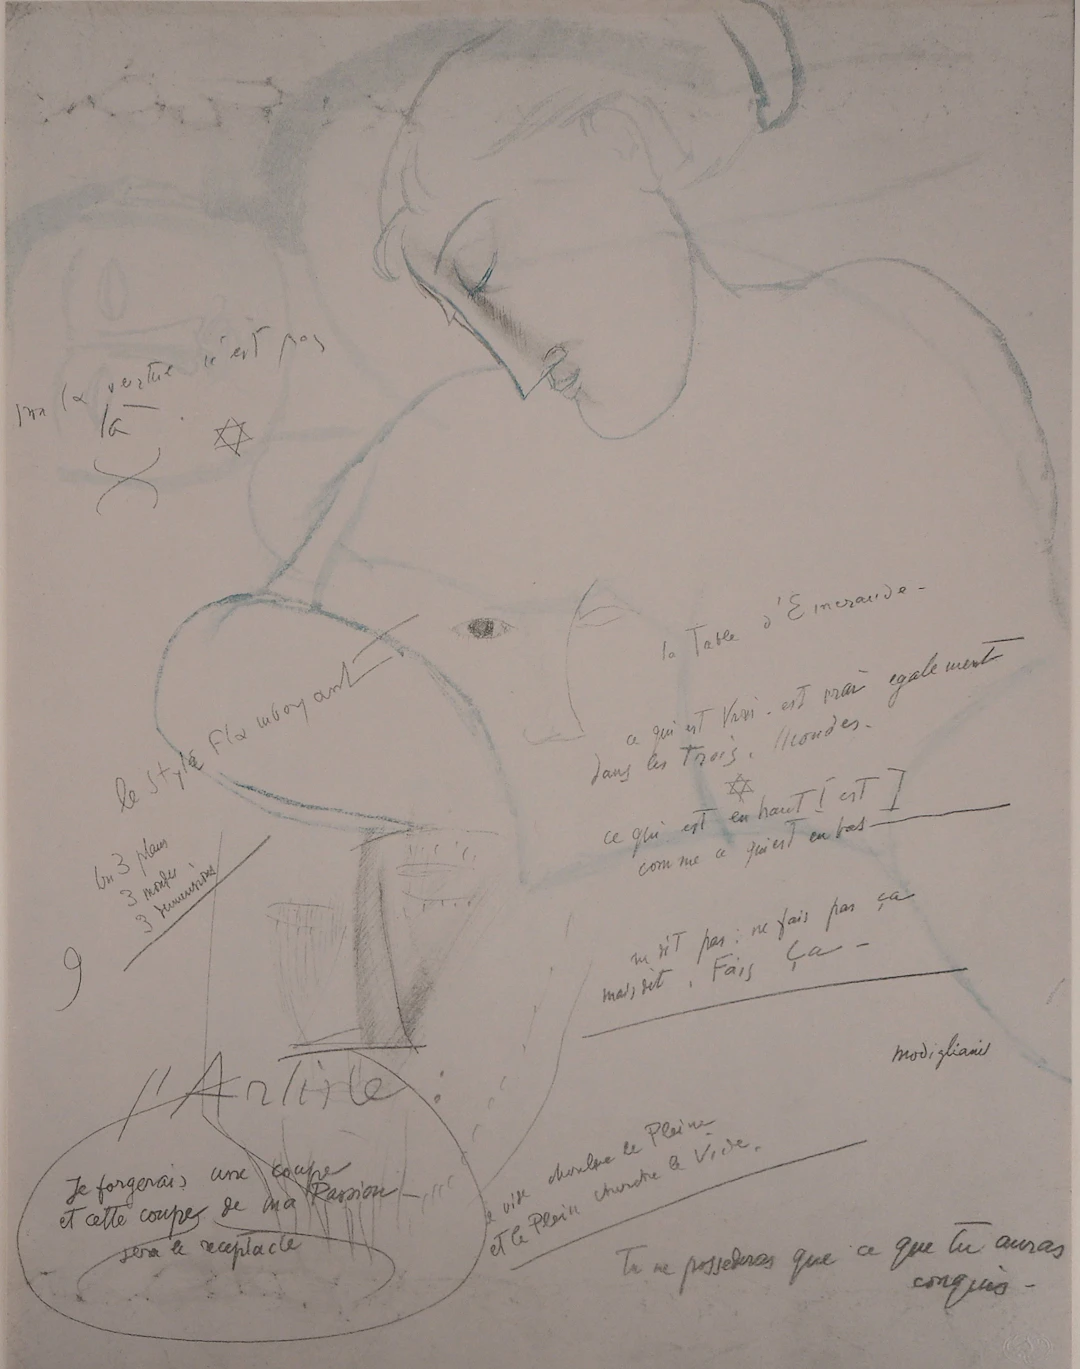 la vertue n'est pas
là.
la Table d'Emeraude -
ce qui est Vrai - est vrai egalement
dans les Trois. Mondes -
ce qui est en haut [est]
comme ce qui est en bas
le style Flamboyant
3 plans
3 mondes
3 dimensions
9
dit pas : ne fais pas ça
mais dit. Fais ça -
modigliani
l'Artiste :
Je forgerais une coupe
et cette coupe de ma Passion -
sera le receptacle
vide cherche le Plein
et le Plein cherche le Vide.
Tu ne possederas que ce que tu auras
conquis -